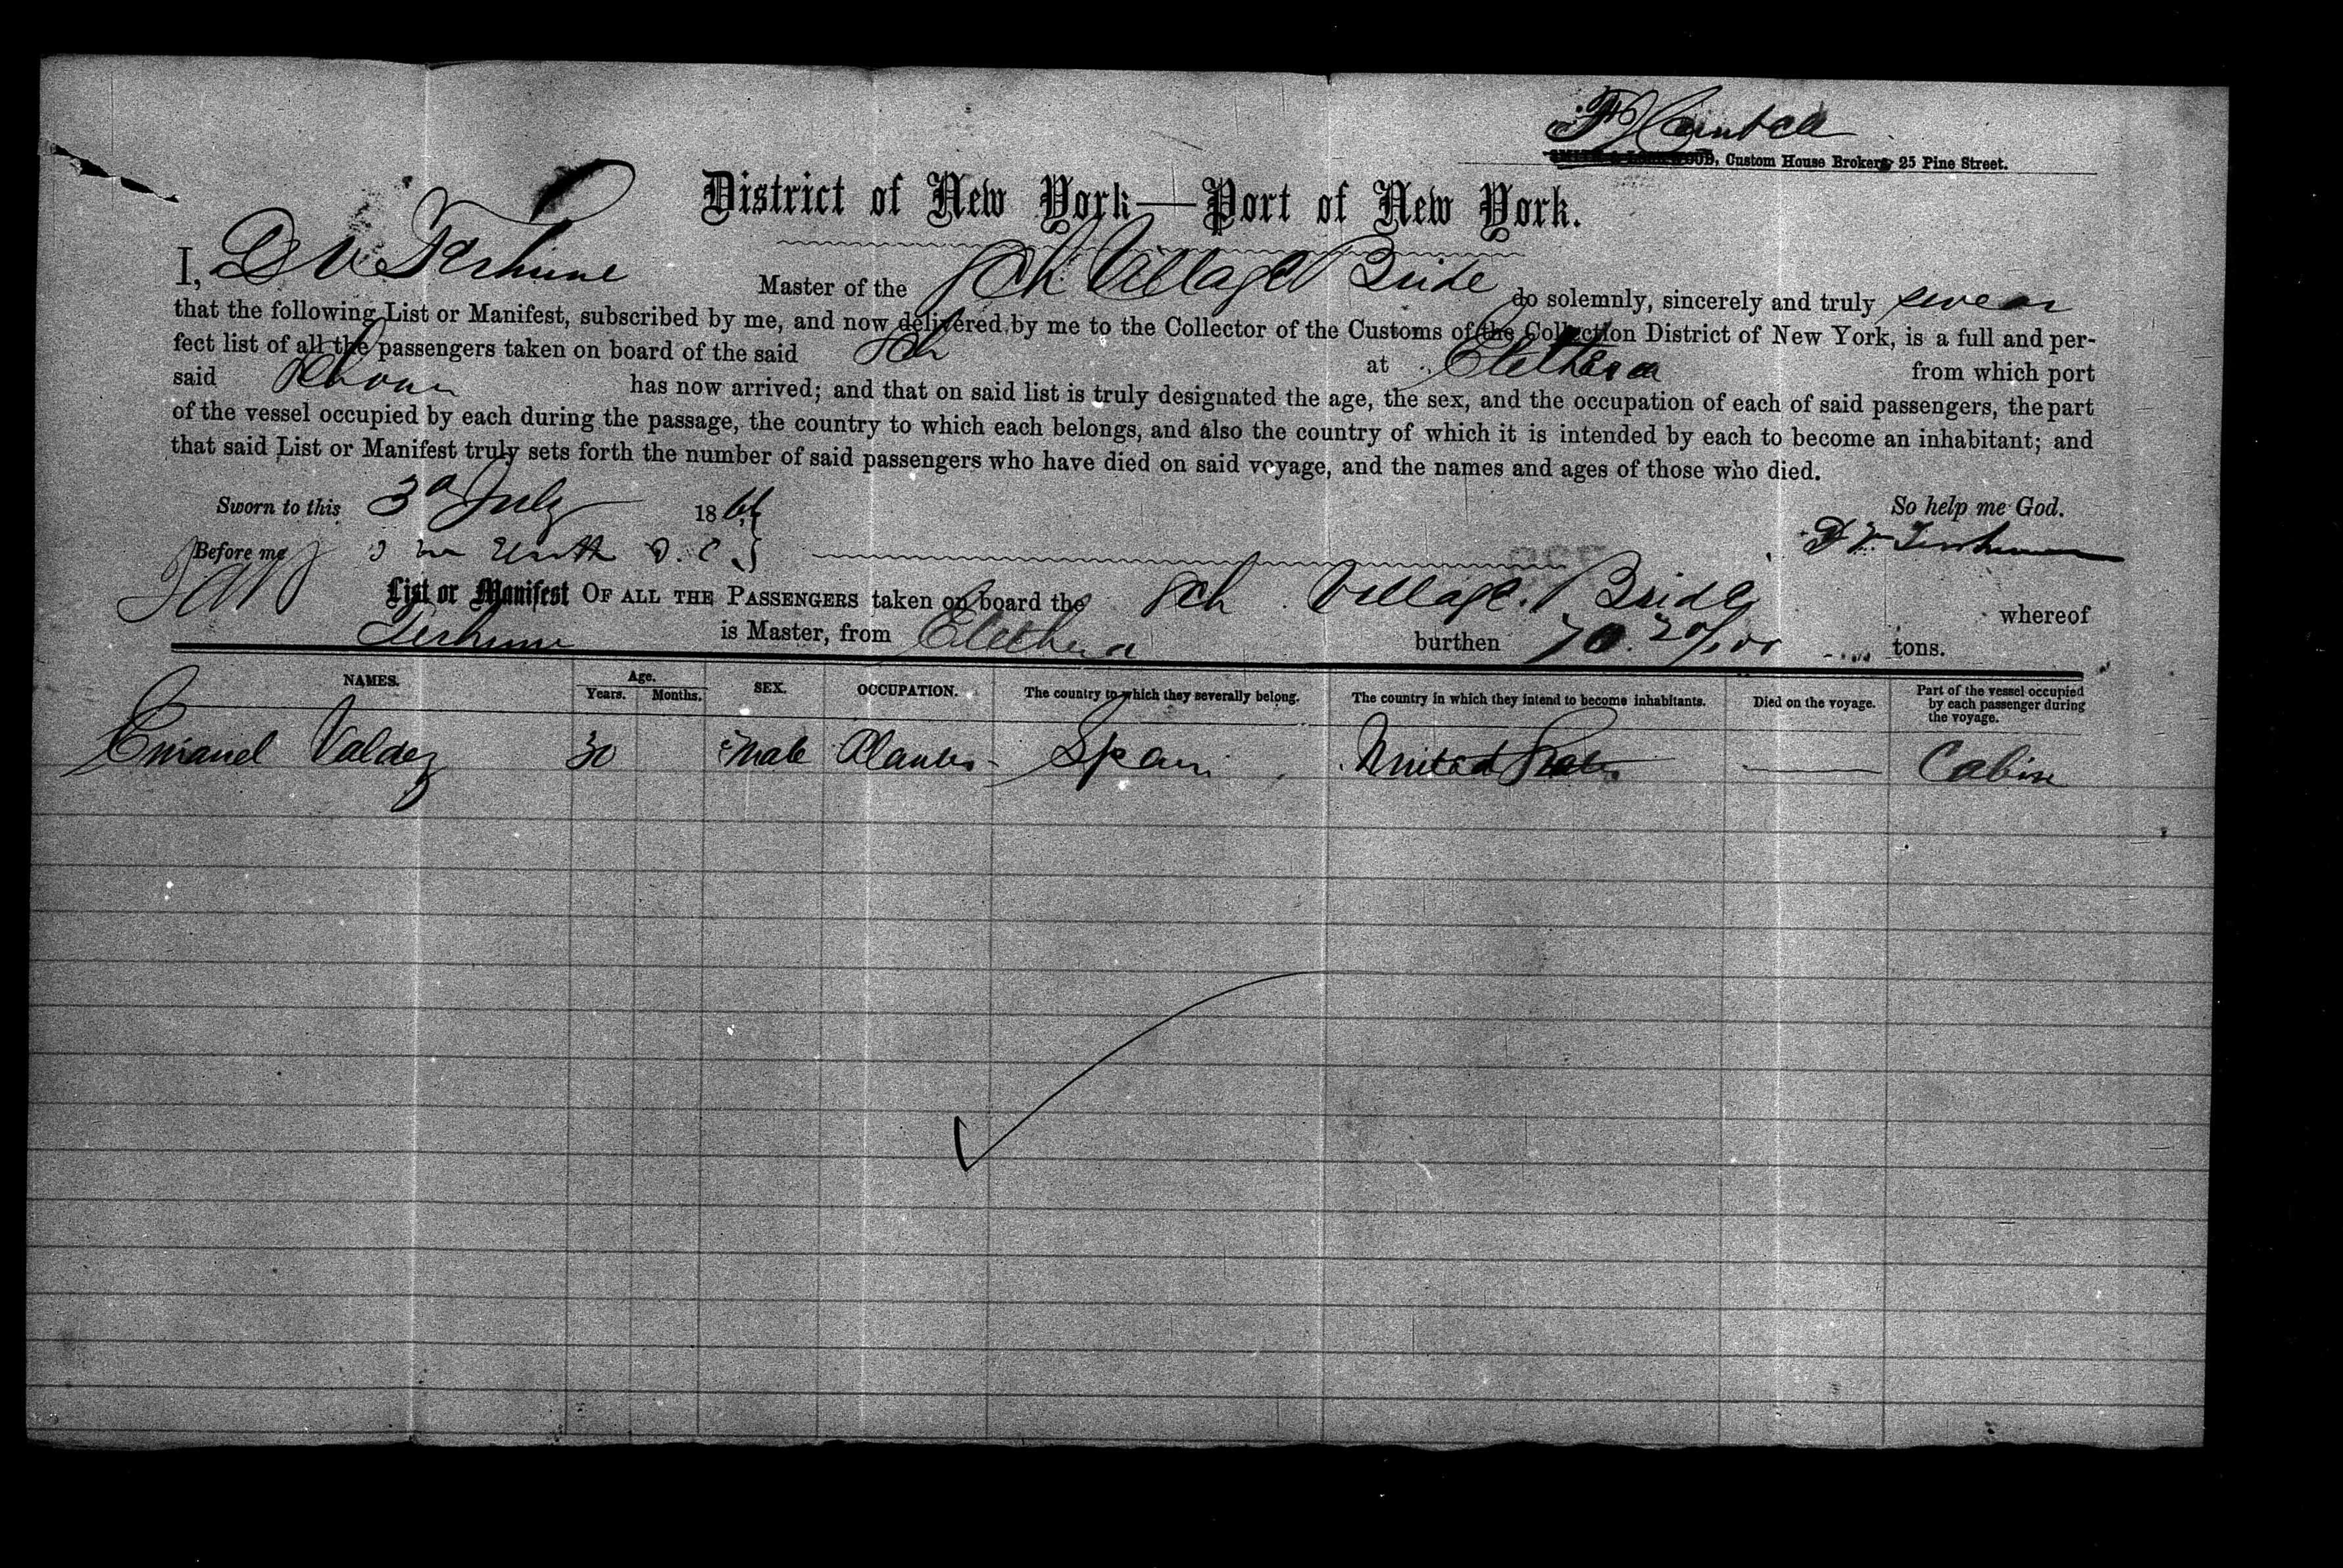 Custom House Brokers, 25 Pine Street.
District of New York—Port of New York.
I, D V Terhune Master of the Sch Village Bride do solemnly, sincerely and truly swear
that the following List or Manifest, subscribed by me, and now delivered by me to the Collector of the Customs of the Collection District of New York, is a full and per-
fect list of all the passengers taken on board of the said Sch at Elethera from which port
said Schour has now arrived; and that on said list is truly designated the age, the sex, and the occupation of each of said passengers, the part
of the vessel occupied by each during the passage, the country to which each belongs, and also the country of which it is intended by each to become an inhabitant; and
that said List or Manifest truly sets forth the number of said passengers who have died on said voyage, and the names and ages of those who died.
Sworn to this 3d July 1866 So help me God.
Before me D. C. D V Terhune
List or Manifest OF ALL THE PASSENGERS taken on board the Sch Village Bride whereof
Terhune is Master, from Elethera burthen 70. 20/100 tons.
NAMES. Age. Years. Months. SEX. OCCUPATION. The country to which they severally belong. The country in which they intend to become inhabitants. Died on the voyage. Part of the vessel occupied by each passenger during the voyage.
Emanuel Valdez 30 Male Planter Spain United States — Cabin